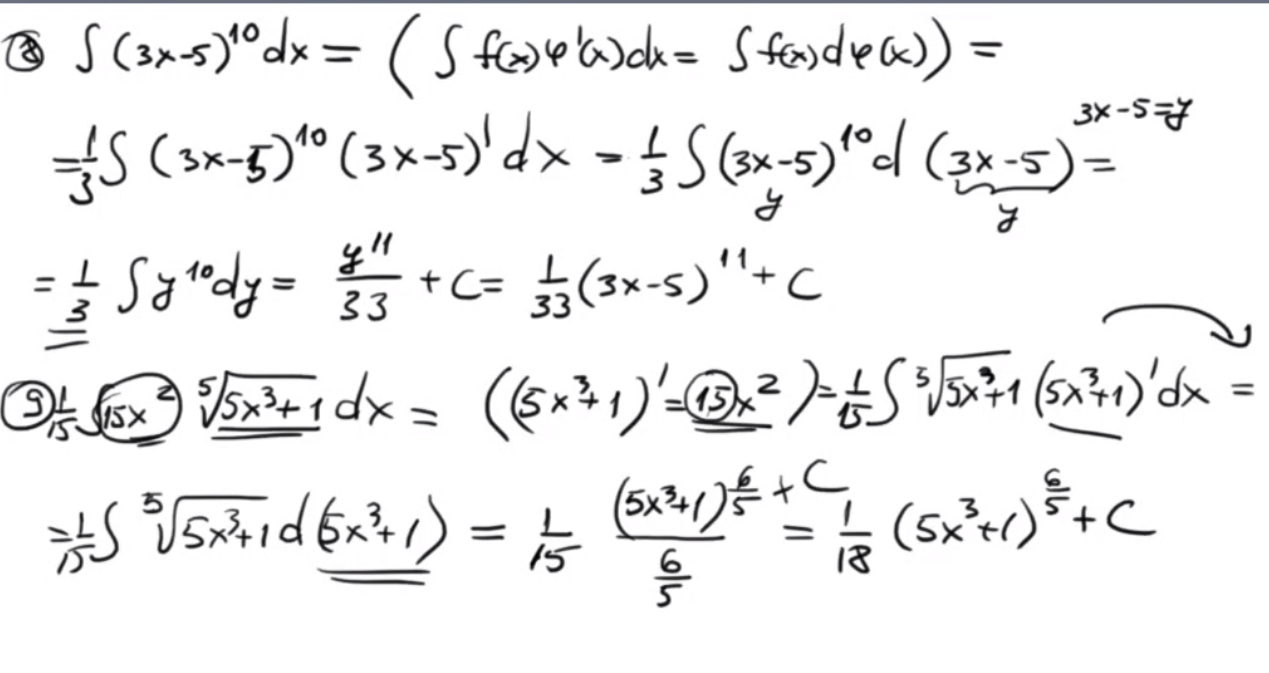 ⑧ ∫(3x-5)¹⁰dx = (∫f(x)φ'(x)dx = ∫f(x)dφ(x)) =
3x-5=y
=1/3 ∫(3x-5)¹⁰(3x-5)'dx = 1/3 ∫(3x-5)¹⁰d(3x-5) =
y y
= 1/3 ∫y¹⁰dy = y¹¹/33 + C = 1/33 (3x-5)¹¹ + C
⑨ 1/15 ∫15x² ⁵√(5x³+1) dx = ((5x³+1)'=15x²) = 1/15 ∫ ⁵√(5x³+1) (5x³+1)'dx =
=1/15 ∫ ⁵√(5x³+1) d(5x³+1) = 1/15 (5x³+1)^(6/5)/(6/5) + C = 1/18 (5x³+1)^(6/5) + C